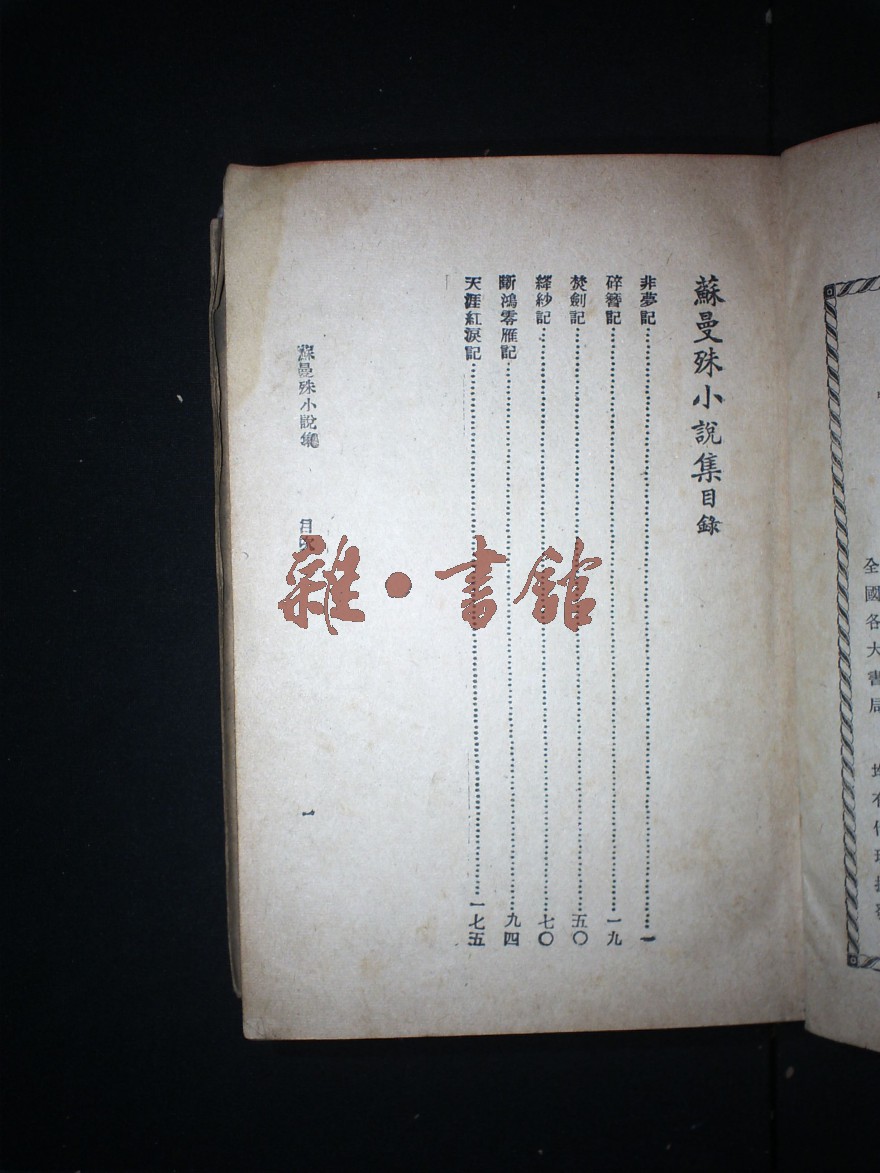 全國各大書局
蘇曼殊小說集目錄
非夢記……一
碎簪記……一九
焚劍記……五〇
絳紗記……七〇
斷鴻零雁記……九四
天涯紅淚記……一七五
蘇曼殊小說集 目次 一
雜·書館